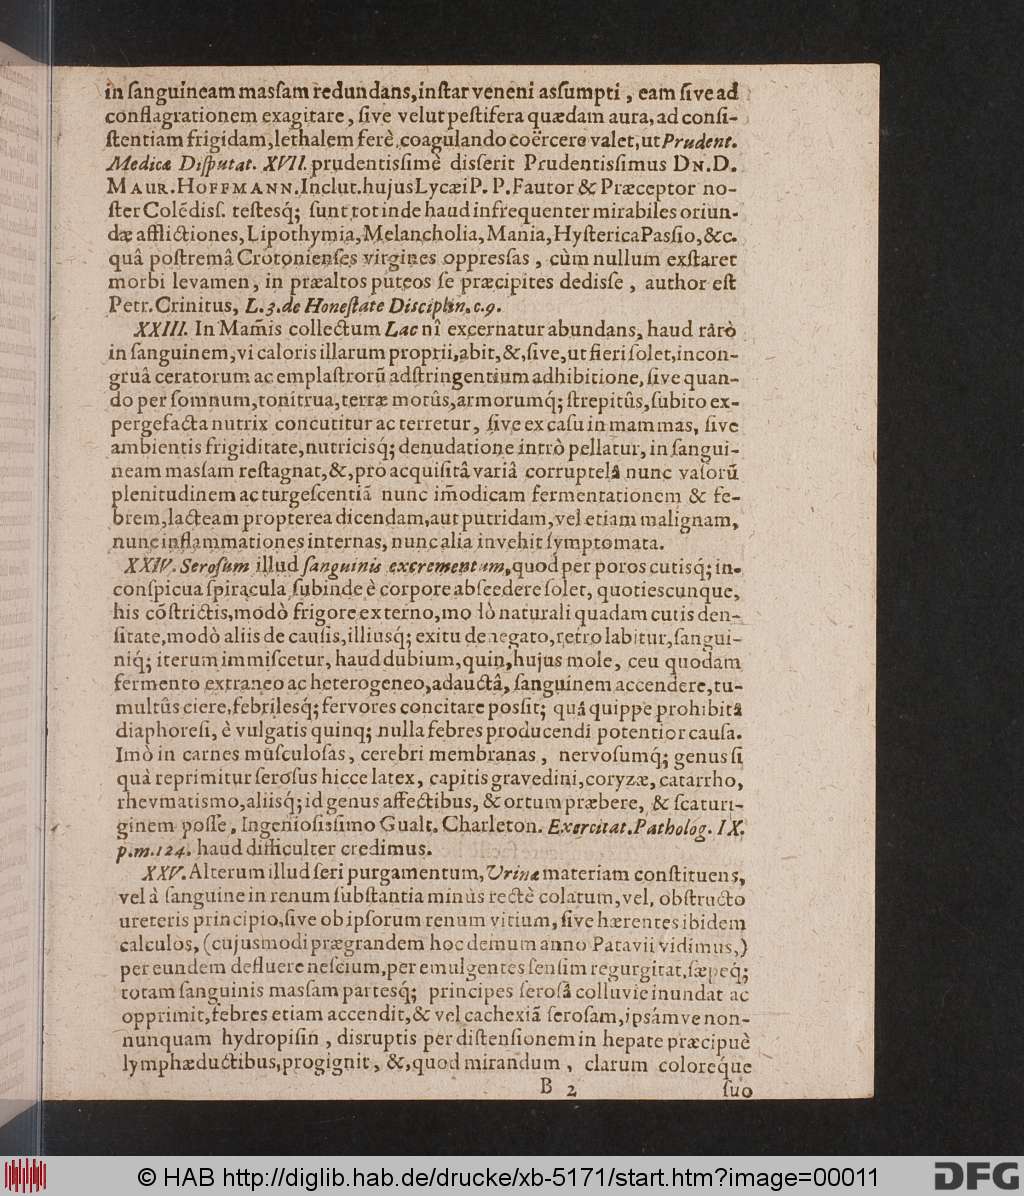 in ſanguineam maſſam redundans, inſtar veneni aſſumpti, eam ſive ad
conflagrationem exagitare, ſive velut peſtifera quædam aura, ad conſi-
ſtentiam frigidam, lethalem ferè coagulando coërcere valet, ut Prudent.
Medicæ Diſputat. XVII. prudentiſſimè diſſerit Prudentiſſimus DN. D.
MAUR. HOFFMANN. Inclut. hujus Lycæi P. P. Fautor & Præceptor no-
ſter Colēdiſſ. teſtesq́; ſunt tot inde haud infrequenter mirabiles oriun-
dæ afflictiones, Lipothymia, Melancholia, Mania, Hyſterica Paſſio, &c.
quâ poſtremâ Crotonienſes virgines oppreſſas, cùm nullum exſtaret
morbi levamen, in præaltos puteos ſe præcipites dediſſe, author eſt
Petr. Crinitus, L. 3. de Honeſtate Diſciplin. c. 9.
XXIII. In Mam̄is collectum Lac nî excernatur abundans, haud rarò
in ſanguinem, vi caloris illarum proprii, abit, &, ſive, ut fieri ſolet, incon-
gruâ ceratorum ac emplaſtrorū adſtringentium adhibitione, ſive quan-
do per ſomnum, tonitrua, terræ motûs, armorumq́; ſtrepitûs, ſubito ex-
pergefacta nutrix concutitur ac terretur, ſive ex caſu in mammas, ſive
ambientis frigiditate, nutricisq́; denudatione intrò pellatur, in ſangui-
neam maſſam reſtagnat, &, pro acquiſitâ variâ corruptelâ nunc vaſorū
plenitudinem ac turgeſcentiā nunc im̄odicam fermentationem & fe-
brem, lacteam propterea dicendam, aut putridam, vel etiam malignam,
nunc inflammationes internas, nunc alia invehit ſymptomata.
XXIV. Seroſum illud ſanguinis excrementum, quod per poros cutisq́; in-
conſpicua ſpiracula ſubinde è corpore abſcedere ſolet, quotiescunque,
his cōſtrictis, modò frigore externo, modò naturali quadam cutis den-
ſitate, modò aliis de cauſis, illiusq́; exitu denegato, retro labitur, ſangui-
niq́; iterum immiſcetur, haud dubium, quin, hujus mole, ceu quodam
fermento extraneo ac heterogeneo, adauctâ, ſanguinem accendere, tu-
multûs ciere, febrilesq́; fervores concitare poſſit; quâ quippe prohibitâ
diaphoreſi, è vulgatis quinq; nulla febres producendi potentior cauſa.
Imò in carnes muſculoſas, cerebri membranas, nervoſumq́; genus ſi
quà reprimitur ſeroſus hicce latex, capitis gravedini, coryzæ, catarrho,
rhevmatismo, aliisq́; id genus affectibus, & ortum præbere, & ſcaturi-
ginem poſſe, Ingenioſiſſimo Gualt. Charleton. Exercitat. Patholog. IX.
p. m. 124. haud difficulter credimus.
XXV. Alterum illud ſeri purgamentum, Urinæ materiam conſtituens,
vel à ſanguine in renum ſubſtantia minùs rectè colatum, vel, obſtructo
ureteris principio, ſive ob ipſorum renum vitium, ſive hærentes ibidem
calculos, (cujusmodi prægrandem hoc demum anno Patavii vidimus,)
per eundem defluere neſcium, per emulgentes ſenſim regurgitat, ſæpeq́;
totam ſanguinis maſſam partesq́; principes ſeroſâ colluvie inundat ac
opprimit, febres etiam accendit, & vel cachexiā ſeroſam, ipsámve non-
nunquam hydropiſin, disruptis per diſtenſionem in hepate præcipuè
lymphæductibus, progignit, &, quod mirandum, clarum coloreq́ue
B 2 ſuo
© HAB http://diglib.hab.de/drucke/xb-5171/start.htm?image=00011
DFG